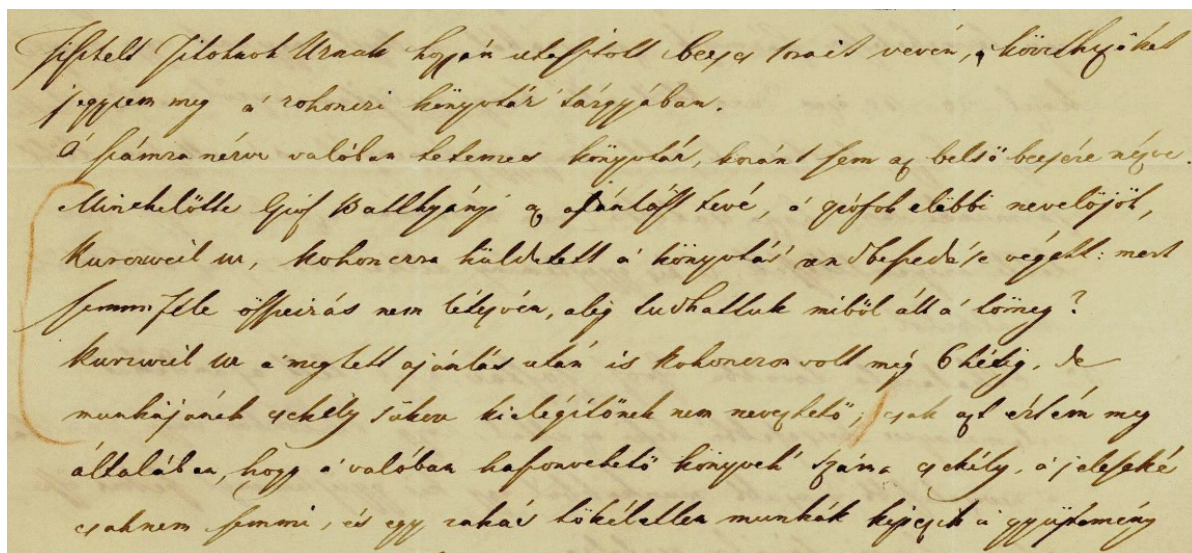 Tisztelt Titoknok Urnak hozzán utasított becses sorait vevén, a következőket
jegyzem meg a' rohonczi könyvtár' tárgyában.
A' számra nézve valóban tetemes könyvtár, koránt sem az belső becsére nézve.
Minekelőtte Gróf Batthyányi az ajánlást tevé, a' grófok előbbi nevelőjök,
Kurzweil ur, Rohonczra küldetett a' könyvtár' rendbeszedése végett: mert
semmiféle összeirás nem létezvén, alig tudhattuk miből áll a' tömeg?
Kurzweil ur a' megtett ajánlás után is Rohonczon volt még 6 hétig, de
munkájának csekély sikere kielégítőnek nem neveztető; csak azt értém meg
általában, hogy a' valóban hasonvehető könyvek' száma csekély, a' jeleseké
csaknem semmi, és egy rakás tökéletlen munkák képezik a' gyüjtemény